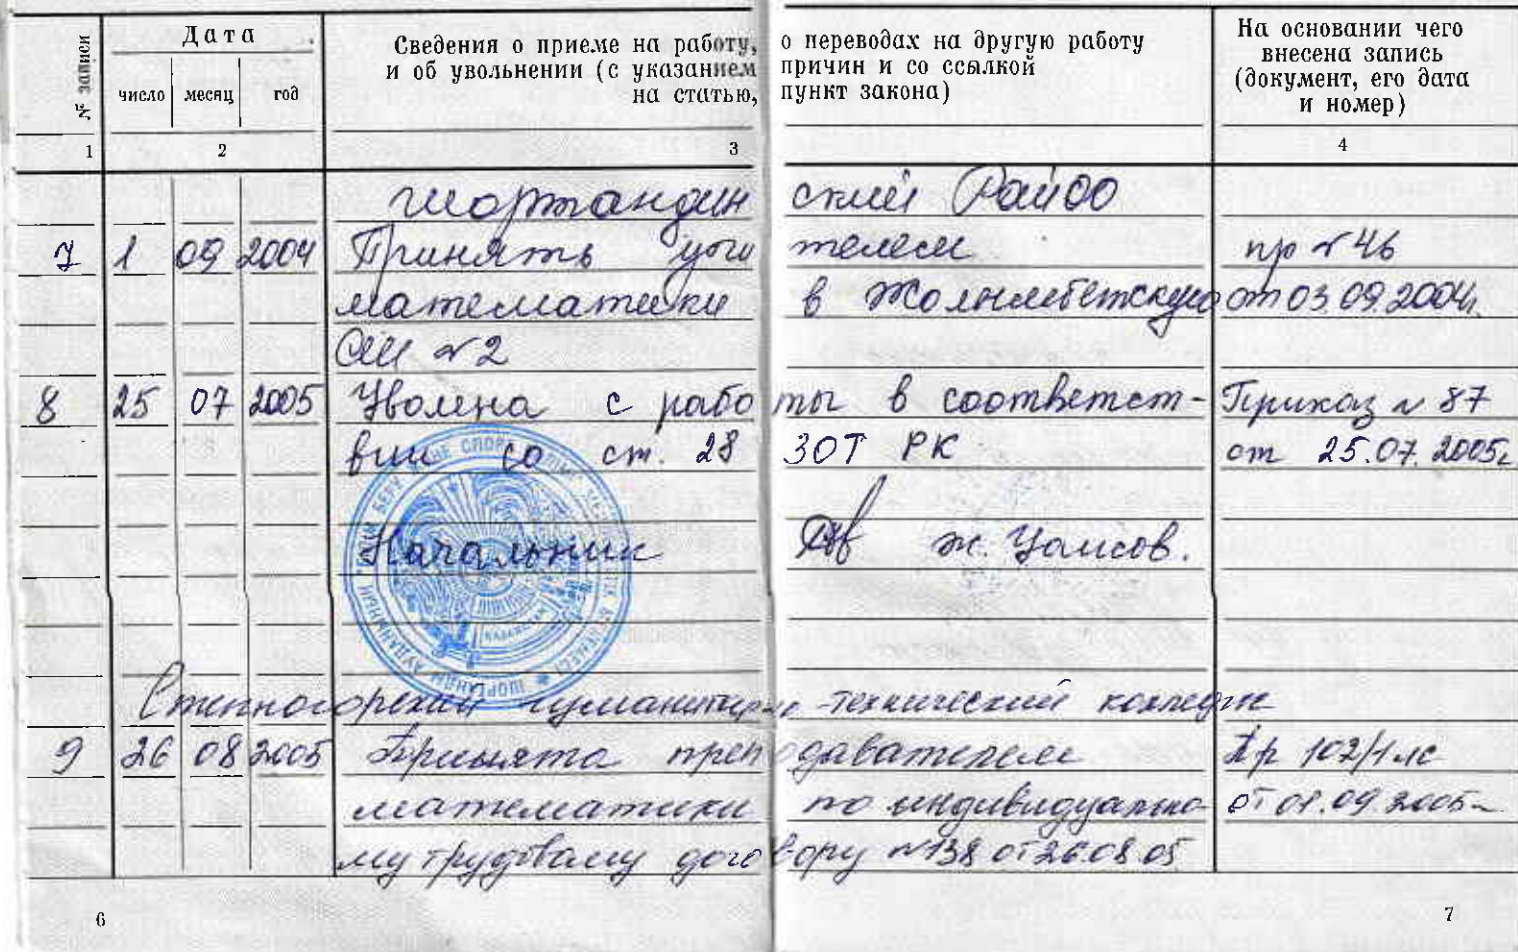 № записи
Дата
число месяц год
Сведения о приеме на работу, о переводах на другую работу
и об увольнении (с указанием причин и со ссылкой
на статью, пункт закона)
На основании чего
внесена запись
(документ, его дата
и номер)
1 2 3 4
Шортандинский РайОО
7 1 09 2004 Принять учителем пр №46
математики в Жолымбетскую от 03.09.2004г.
СШ №2
8 25 07 2005 Уволена с работы в соответст- Приказ № 87
вии со ст. 28 ЗОТ РК от 25.07.2005г
Начальник Ж. Уаисов.
КАЗАХСТАН
Степногорский гуманитарно-технический колледж
9 26 08 2005 Принята преподавателем Пр 102/1 лс
математики по индивидуально- от 01.09.2005г
му трудовому договору №138 от 26 08 05
6 7